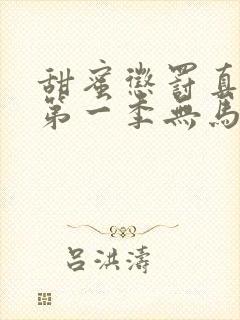 甜蜜懲罰真
第一季無馬
呂洪濤